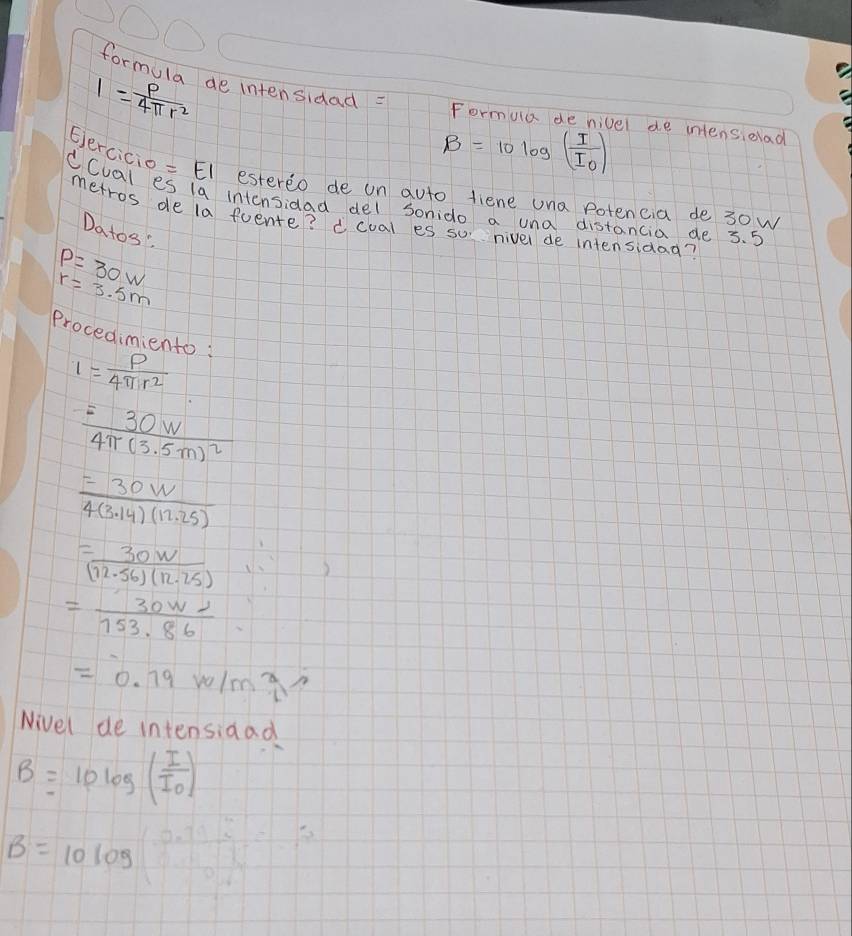 formula de intensidad =
I = P / 4π r²
Formula de nivel de intensidad
B = 10 log (I / I₀)
Ejercicio = El esteréo de un auto tiene una potencia de 30W
¿Cual es la intensidad del sonido a una distancia de 3.5
metros de la fuente? ¿cual es su nivel de intensidad?
Datos:
P= 30W
r= 3.5m
Procedimiento:
I = P / 4π r²
= 30W / 4π (3.5m)²
= 30W / 4(3.14)(12.25)
= 30W / (12.56)(12.25)
= 30W / 153.86
= 0.19 w/m²
Nivel de intensidad
B = 10 log (I / I₀)
B = 10 log